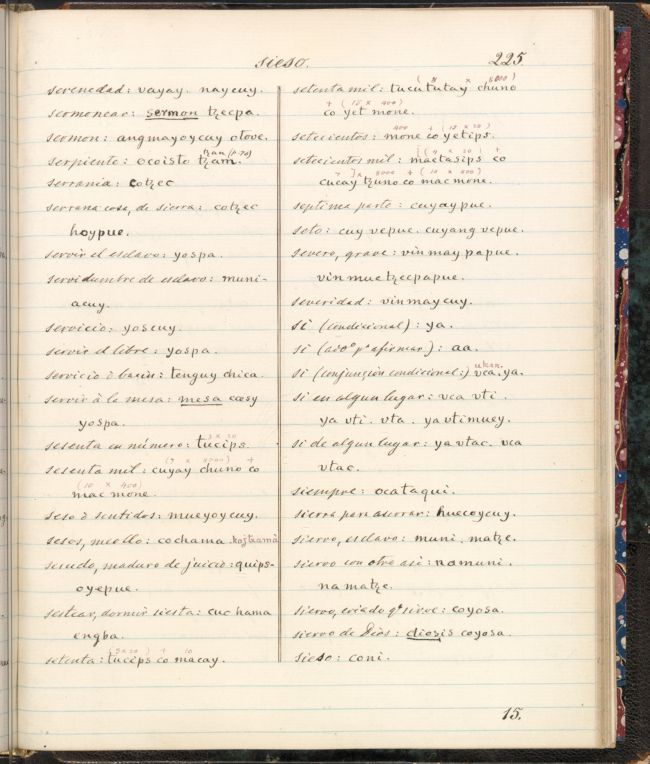 sieso.
225
serenedad: vayay. naycuy.
sermonear: sermon tzecpa.
sermon: angmayoycuy otove.
tzan (p. 70)
serpiente: ocoisto tzam.
serrania: cotzec
serrana cosa, de sierra: cotzec
hoypue.
servir el esclavo: yospa.
servidumbre de esclavo: muni-
acuy.
servicio: yoscuy.
servir el libre: yospa.
servicio ò bacin: tenguy chica.
servir à la mesa: mesa cœsy
yospa.
3 x 20
sesenta en número: tucips.
(7 x 8000) +
sesenta mil: cuyay chuno co
(10 x 400)
mac mone.
seso ò sentidos: mueyoycuy.
sesos, meollo: cochama. kojkamà
sesudo, maduro de juicio: quips-
oyepue.
sestear, dormir siesta: cuc hama
engba.
(3x20) + 10
setenta: tucips co macay.
( 8 x 8000)
setenta mil: tucututay chuno
+ (15 x 400)
co yet mone.
400 + (15 x 20)
setecientos: mone co yetips.
[(4 x 20) +
setecientos mil: mactasips co
7 ] x 8000 + (10 x 400)
cucay tzuno co mac mone.
septima parte: cuyaypue.
seto: cuy vepue. cuyang vepue.
severo, grave: vin may papue.
vin mue tzecpapue.
severidad: vin maycuy.
si (condicional): ya.
si (advo pa afirmar): aa.
ukan.
si (conjunción condicional:) vca. ya.
si en algun lugar: vca vti.
ya vti. vta. ya vti muey.
si de algun lugar: ya vtac. vca
vtac.
siempre: ocataqui.
sierra para aserrar: huecoycuy.
siervo, esclavo: muni. matze.
siervo con otro asi: na muni.
na matze.
siervo, criado qe sirve: coyosa.
siervo de Dios: diosis coyosa.
sieso: coni.
15.